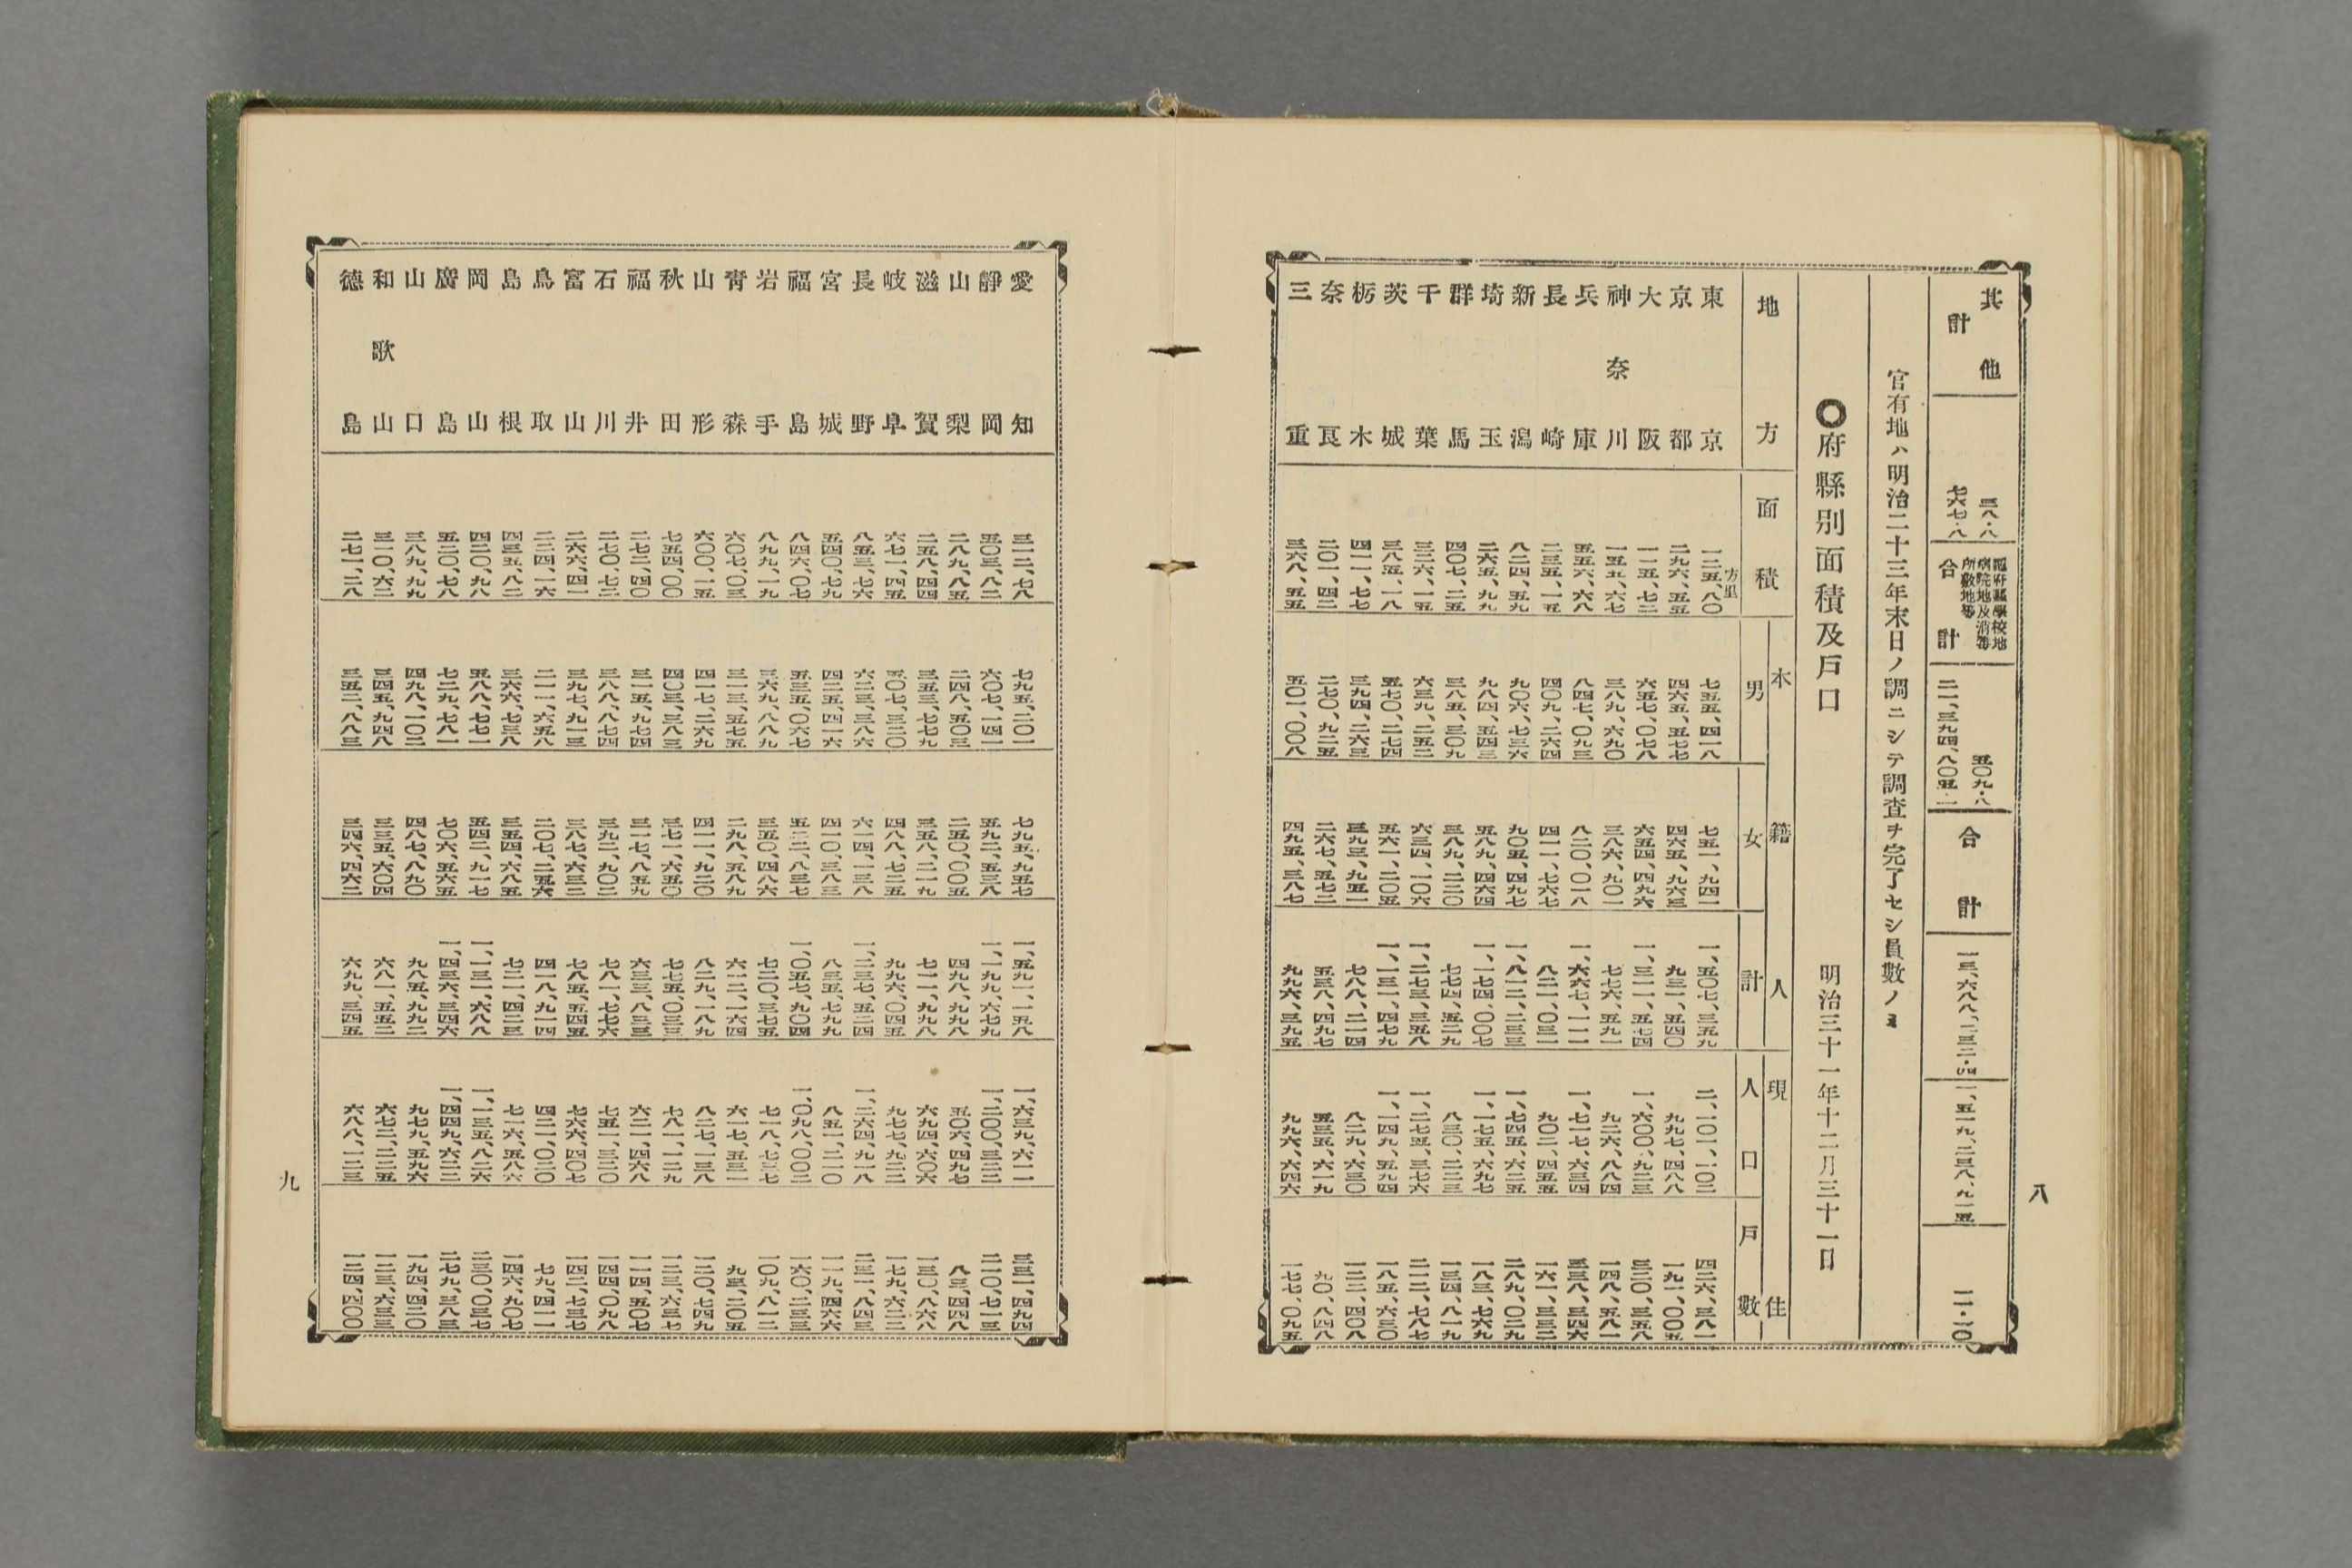 八
其他 三八・八 五〇九・八
計 七六七・八 合計 二一、三九四、八〇五・一 合計 一三、六八八、二三二・四 一、五一九、二三八、九一五 一一・一〇
官有地ハ明治二十三年末日ノ調ニシテ調査ヲ完了セシ員數ノミ
〇府縣別面積及戸口 明治三十一年十二月三十一日
地方 面積 本籍人 男 女 計 現住 人口 戸數
方里
東京 一二五、八〇 七五五、四一八 七五一、九四一 一、五〇七、三五九 二、一〇一、一〇二 四二六、三八一
京都 二九六、五五 四六五、五七七 四六五、九六三 九三一、五四〇 九九七、四八八 一九一、〇〇五
大阪 一一五、七二 六五七、〇七八 六五四、四九六 一、三一一、五七四 一、六〇〇、九二三 三二〇、三五八
神奈川 一五五、六七 三八九、六九〇 三八六、九〇一 七七六、五九一 九二六、八八四 一四八、五八一
兵庫 五五六、六八 八四七、〇九三 八二〇、〇一八 一、六六七、一一一 一、七一七、六三四 三三八、三四六
長崎 二三五、一五 四〇九、二六四 四一一、七六七 八二一、〇三一 九〇二、四五五 一六一、三三二
新潟 八二四、五九 九〇六、七三六 九〇五、四九七 一、八一二、二三三 一、七四五、六二五 二八九、〇二九
埼玉 二六五、九九 五八四、五四三 五八九、四六四 一、一七四、〇〇七 一、一七五、六九七 一八三、七六九
群馬 四〇七、二五 三八五、三〇九 三八九、二二〇 七七四、五二九 八三〇、二二三 一三四、八一九
千葉 三二六、一五 六三九、二五二 六三四、一〇六 一、二七三、三五八 一、二七五、三七六 二一二、七八七
茨城 三八五、一八 五七〇、二七四 五六一、二〇五 一、一三一、四七九 一、一四九、五九四 一八五、六三〇
栃木 四一一、七七 三九四、二六三 三九三、九五一 七八八、二一四 八二九、六三〇 一二二、四〇八
奈良 二〇一、四二 二七〇、九二五 二六七、五七二 五三八、四九七 五三五、六一九 九〇、八四八
三重 三六八、五五 五〇一、〇〇八 四九五、三八七 九九六、三九五 九九六、六四六 一七七、〇九五
愛知 三一二、七八 七九五、二〇一 七九五、九五七 一、五九一、一五八 一、六三九、六一一 三三一、四九四
靜岡 五〇三、八二 六〇七、一四一 五九二、五三八 一、一九九、六七九 一、二〇〇、三二二 二一〇、七一三
山梨 二八九、八五 二四八、五〇三 二五〇、〇〇五 四九八、九九八 五〇六、四九七 八三、四四八
滋賀 二五八、四四 三五三、七七九 三五八、二一九 七一一、九九八 六九四、六〇六 一三〇、八六八
岐阜 六七一、四五 五〇七、三二〇 四八八、七二五 九九六、〇四五 九七七、九二二 一七九、六二二
長野 八五三、七六 六二三、三八六 六一四、一三八 一、二三七、五二四 一、二六四、九一八 二三一、八四三
宮城 五四〇、七九 四二五、四一六 四一〇、三八三 八三五、七九九 八五一、二一〇 一一九、四六六
福島 八四六、〇七 五三五、〇六七 五二二、八三七 一、〇五七、九〇四 一、〇九八、〇〇二 一六〇、二三三
岩手 八九九、一九 三六九、八八九 三五〇、四八六 七二〇、三七五 七一八、七三七 一〇九、八一二
青森 六〇七、〇三 三一三、五七五 二九八、五八九 六一二、一六四 六一七、五三一 九三、二〇五
山形 六〇〇、一五 四一七、二六九 四一一、九二〇 八二九、一八九 八二七、一三八 一二〇、七四九
秋田 七五四、〇〇 四〇三、三八三 三七一、六五〇 七七五、〇三三 七八一、一二九 一二三、六三七
福井 二七二、四〇 三一五、九七四 三一七、八五九 六三三、八三三 六二一、四六八 一一四、五〇七
石川 二七〇、七二 三八八、八七四 三九二、九〇二 七八一、七七六 七五一、三二〇 一四四、〇九八
富山 二六六、四一 三九七、九一三 三八七、六三二 七八五、五四五 七六六、四〇七 一四二、七三七
鳥取 二二四、一六 二一一、六五八 二〇七、二五六 四一八、九一四 四二一、〇二〇 七九、四一一
島根 四三五、八二 三六六、七三八 三五四、六八五 七二一、四二三 七一六、五八六 一四六、九〇七
岡山 四二〇、九八 五八八、七七一 五四二、九一七 一、一三一、六八八 一、一三五、八二六 二三〇、〇三七
廣島 五二〇、七八 七二九、七八一 七〇六、五六五 一、四三六、三四六 一、四四九、六二二 二七九、三八三
山口 三八九、九九 四九八、一〇二 四八七、八九〇 九八五、九九二 九七九、五九六 一九四、四二〇
和歌山 三一〇、六二 三四五、九四八 三三五、六〇四 六八一、五五二 六七二、二二五 一二三、六三三
德島 二七一、二八 三五二、八八三 三四六、四六二 六九九、三四五 六八八、一二三 一二四、四〇〇
九